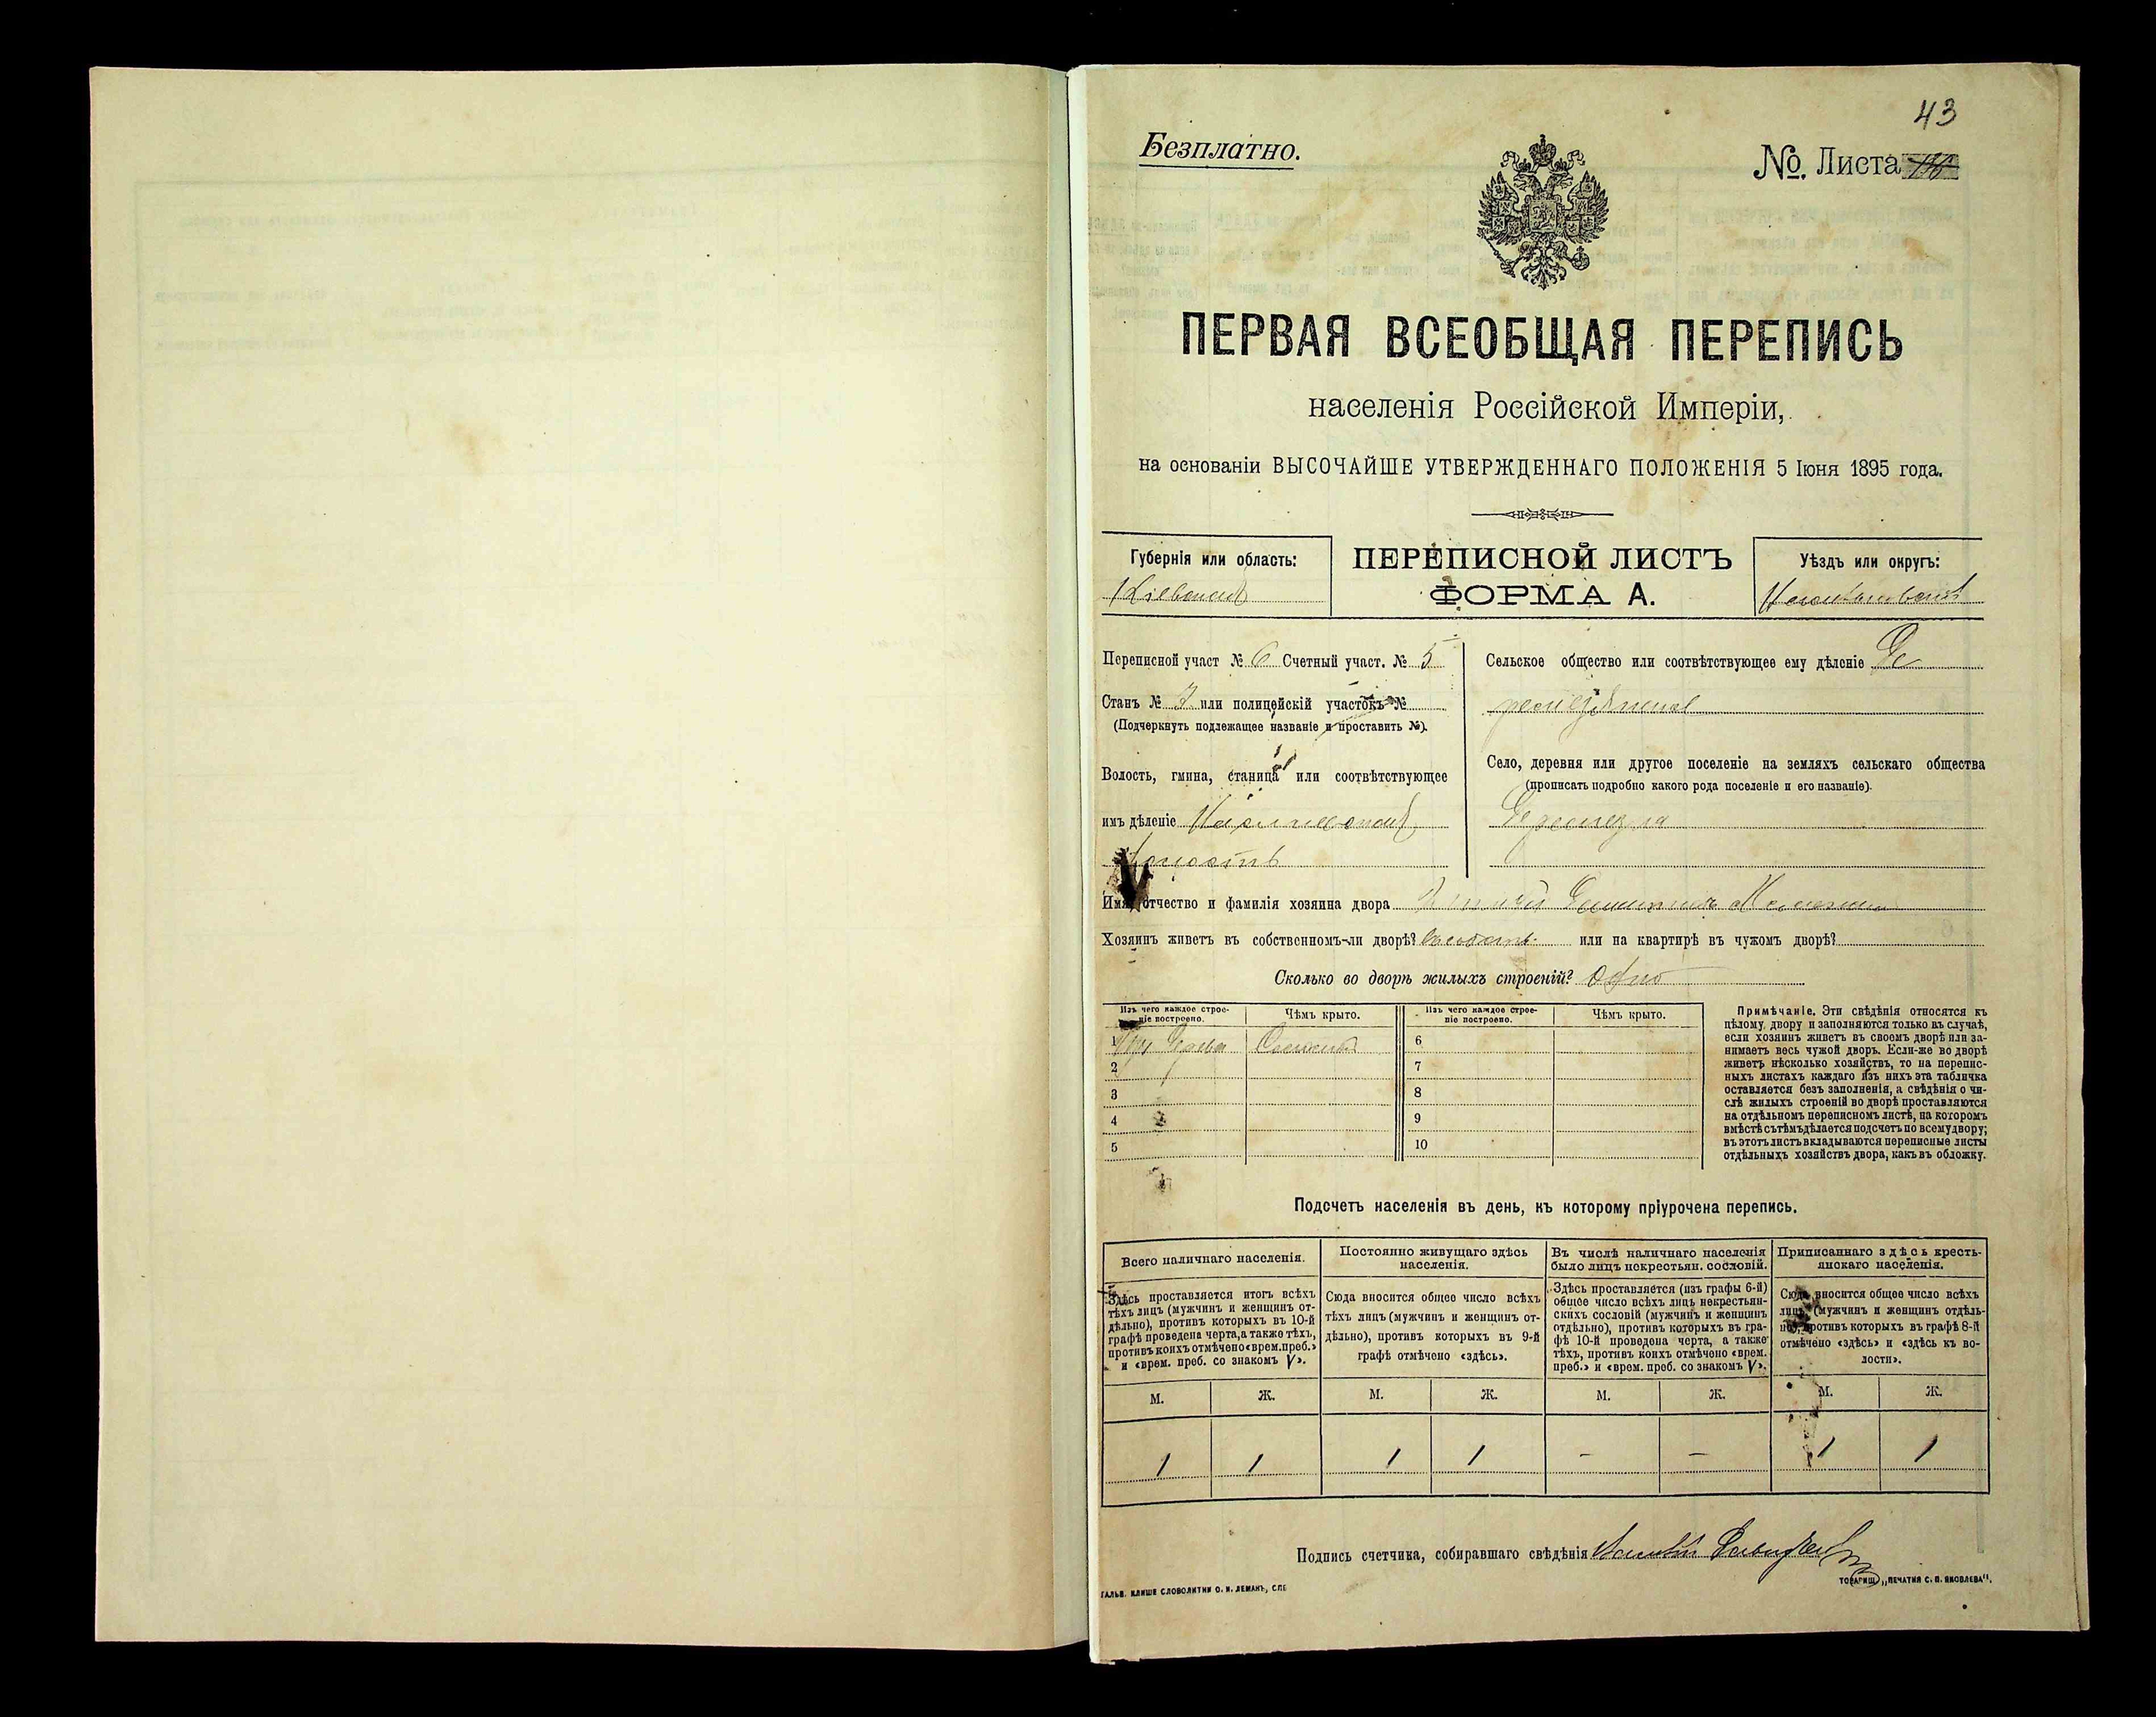 43
Безплатно.
№. Листа
ПЕРВАЯ ВСЕОБЩАЯ ПЕРЕПИСЬ
населенія Россійской Имперіи,
на основаніи ВЫСОЧАЙШЕ УТВЕРЖДЕННАГО ПОЛОЖЕНІЯ 5 Іюня 1895 года.
Губернія или область:
Кіевская
ПЕРЕПИСНОЙ ЛИСТЪ
ФОРМА А.
Уѣздъ или округъ:
Переписной участ № 6 Счетный участ. № 5
Станъ № 3 или полицейскій участокъ №
(Подчеркнуть подлежащее названіе и проставить №).
Волость, гмина, станица или соотвѣтствующее
имъ дѣленіе
волость
Сельское общество или соотвѣтствующее ему дѣленіе
Село, деревня или другое поселеніе на земляхъ сельскаго общества
(прописать подробно какого рода поселеніе и его названіе).
Имя, отчество и фамилія хозяина двора
Хозяинъ живетъ въ собственномъ-ли дворѣ? или на квартирѣ въ чужомъ дворѣ?
Сколько во дворѣ жилыхъ строеній? Одно
Изъ чего каждое строе-
ніе построено.
Чѣмъ крыто.
Изъ чего каждое строе-
ніе построено.
Чѣмъ крыто.
1 Изъ дерева Соломой
2
3
4
5
6
7
8
9
10
Примѣчаніе. Эти свѣдѣнія относятся къ
цѣлому двору и заполняются только въ случаѣ,
если хозяинъ живетъ въ своемъ дворѣ или за-
нимаетъ весь чужой дворъ. Если-же во дворѣ
живетъ нѣсколько хозяйствъ, то на перепис-
ныхъ листахъ каждаго изъ нихъ эта табличка
оставляется безъ заполненія, а свѣдѣнія о чи-
слѣ жилыхъ строеній во дворѣ проставляются
на отдѣльномъ переписномъ листѣ, на которомъ
вмѣстѣ съ тѣмъ дѣлается подсчетъ по всему двору;
въ этотъ листъ вкладываются переписные листы
отдѣльныхъ хозяйствъ двора, какъ въ обложку.
Подсчетъ населенія въ день, къ которому пріурочена перепись.
Всего наличнаго населенія.
Здѣсь проставляется итогъ всѣхъ
тѣхъ лицъ (мужчинъ и женщинъ от-
дѣльно), противъ которыхъ въ 10-й
графѣ проведена черта, а также тѣхъ,
противъ коихъ отмѣчено «врем. преб.»
и «врем. преб. со знакомъ V».
М. Ж.
1 1
Постоянно живущаго здѣсь
населенія.
Сюда вносится общее число всѣхъ
тѣхъ лицъ (мужчинъ и женщинъ от-
дѣльно), противъ которыхъ въ 9-й
графѣ отмѣчено «здѣсь».
М. Ж.
1 1
Въ числѣ наличнаго населенія
было лицъ некрестьян. сословій.
Здѣсь проставляется (изъ графы 6-й)
общее число всѣхъ лицъ некрестьян-
скихъ сословій (мужчинъ и женщинъ
отдѣльно), противъ которыхъ въ гра-
фѣ 10-й проведена черта, а также
тѣхъ, противъ коихъ отмѣчено «врем.
преб.» и «врем. преб. со знакомъ V».
М. Ж.
– –
Приписаннаго здѣсь кресть-
янскаго населенія.
Сюда вносится общее число всѣхъ
лицъ (мужчинъ и женщинъ отдѣль-
но), противъ которыхъ въ графѣ 8-й
отмѣчено «здѣсь» и «здѣсь къ во-
лости».
М. Ж.
1 1
Подпись счетчика, собиравшаго свѣдѣнія
ГАЛЬВ. КЛИШЕ СЛОВОЛИТНИ О. И. ЛЕМАНЪ, СПБ
ТОВАРИЩ. „ПЕЧАТНЯ С. П. ЯКОВЛЕВА“.